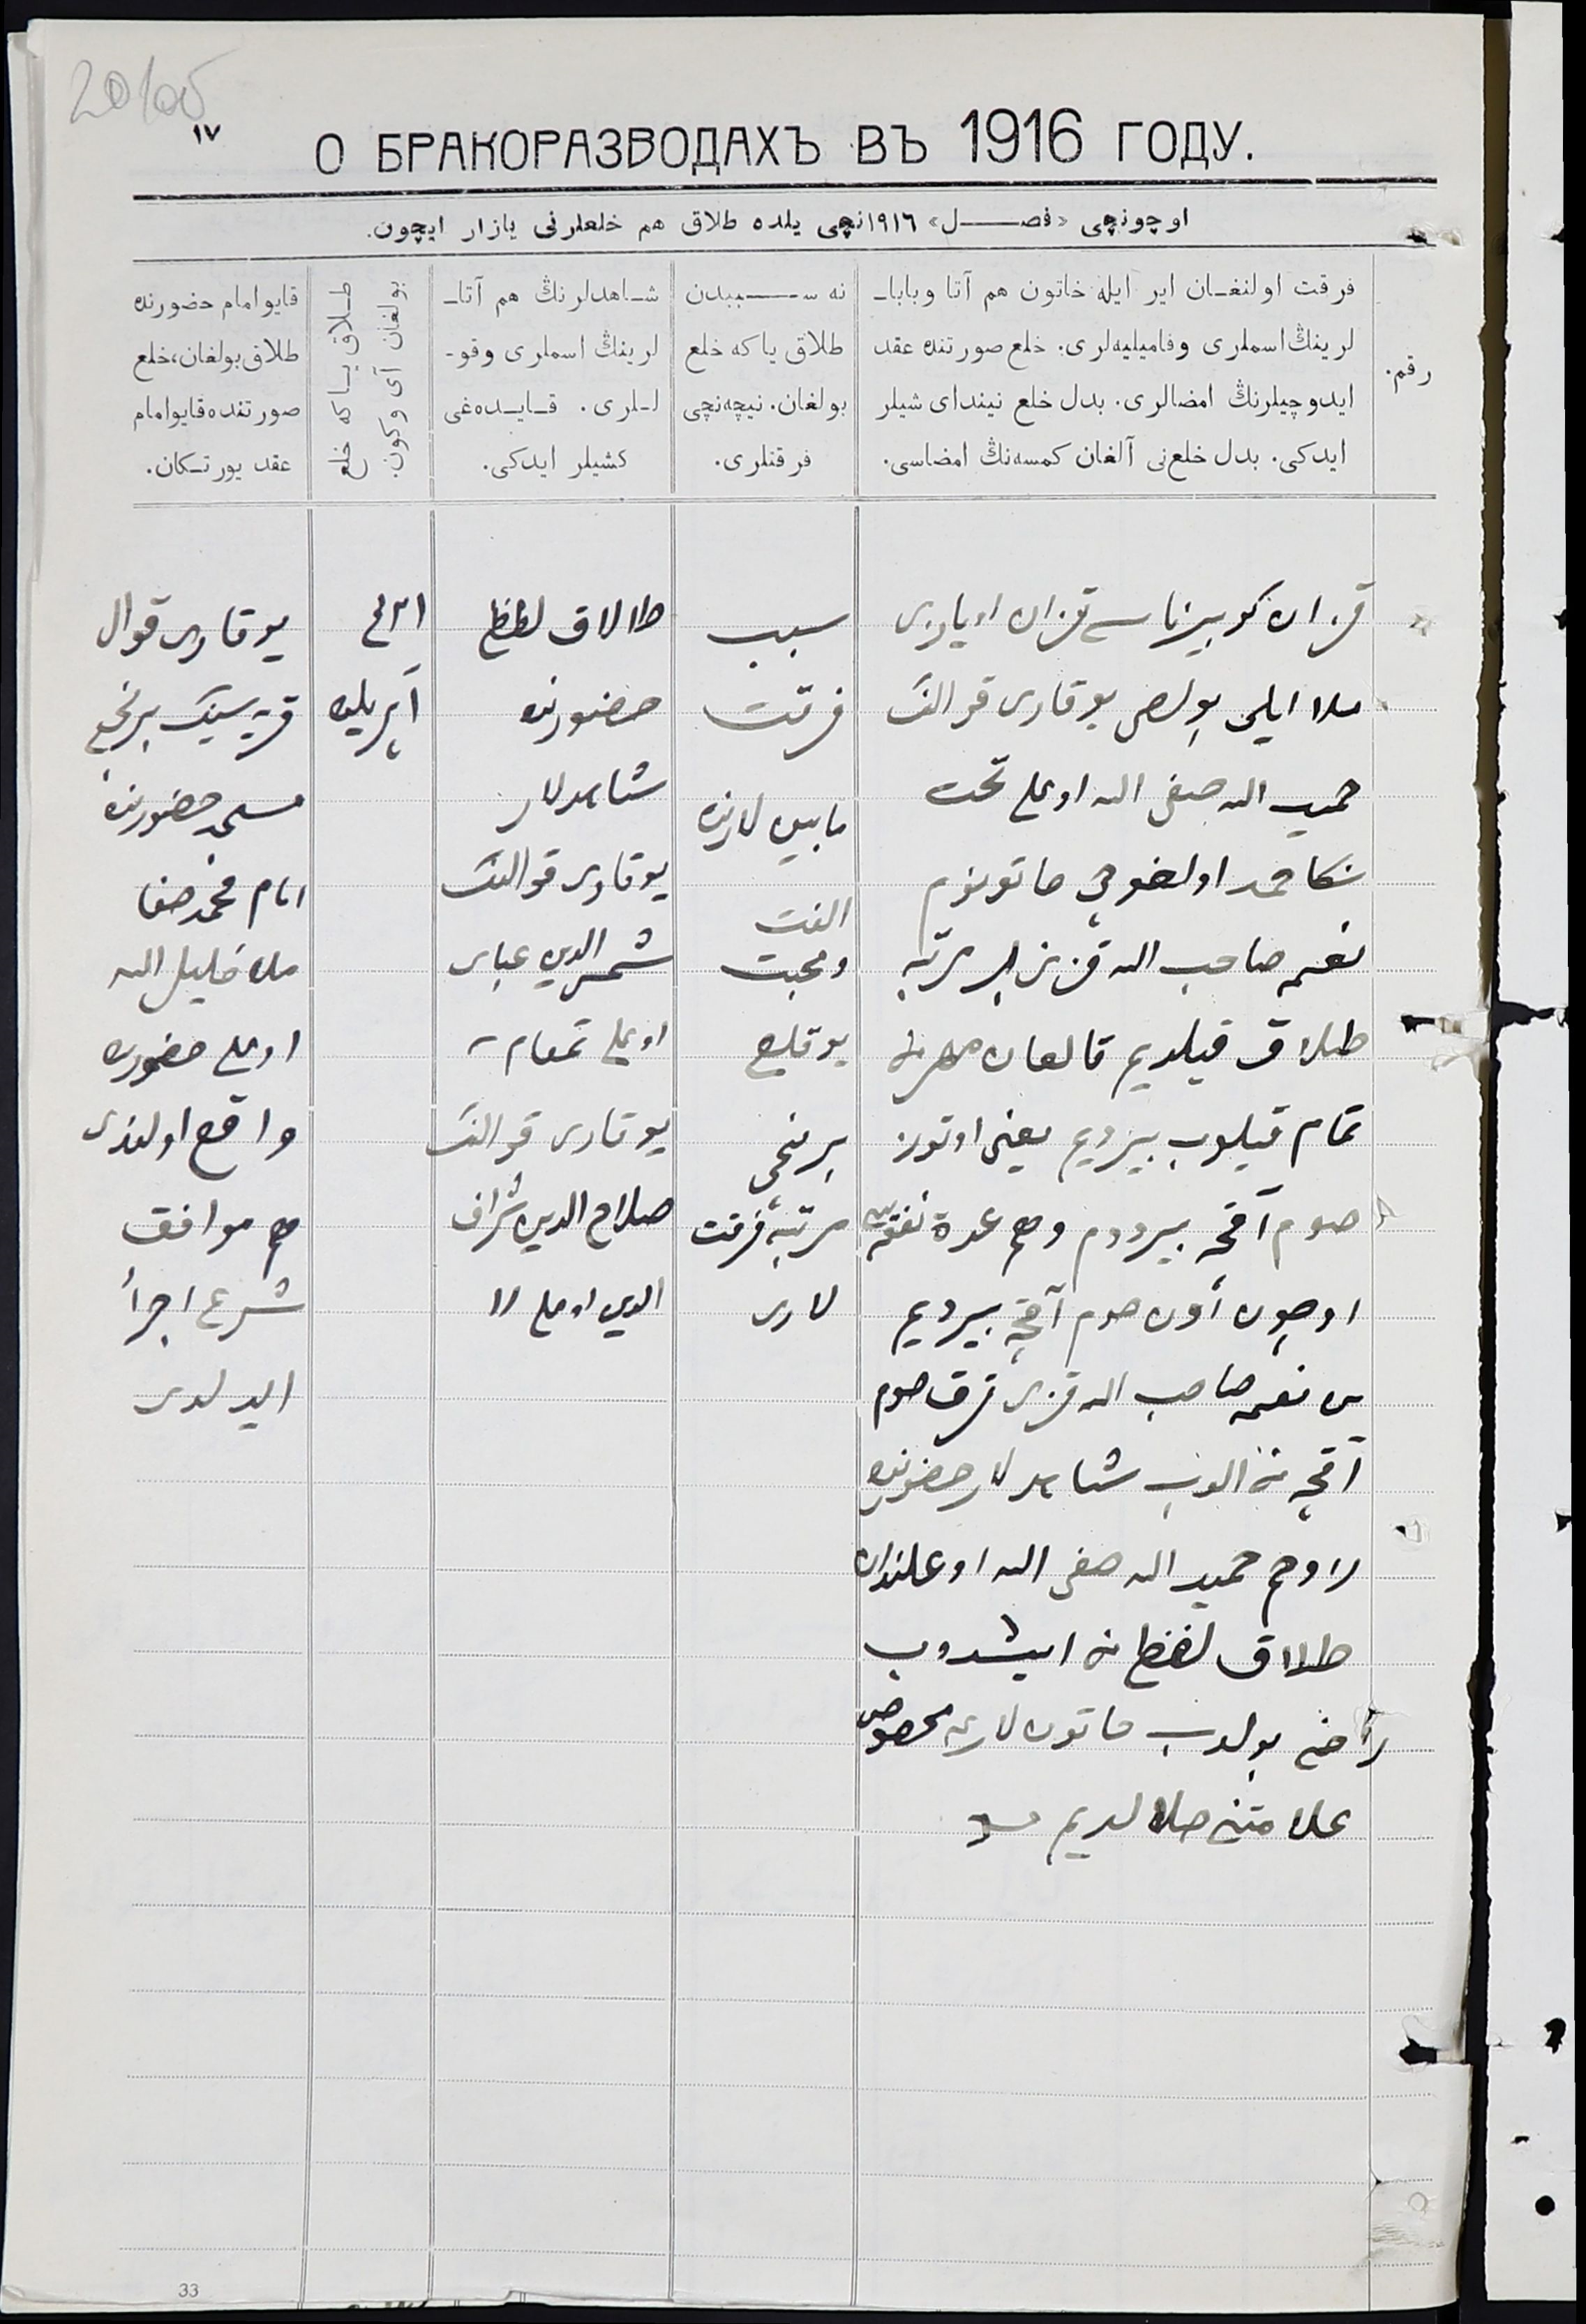 20 об
١٧
О БРАКОРАЗВОДАХЪ ВЪ 1916 ГОДУ.
اوچونچی «فصـــل» ١٩١٦نچی یلده طلاق هم خلعلرنی یازار ایچون.
رقم.
فرقت اولنغـان ایر ایله خاتون هم آتا وبابا-
لرینڭ اسملری وفامیلیه‌لری؛ خلع صورتنده عقد
ایدوچیلرنڭ امضالری. بدل خلع نیندای شیلر
ایدکی. بدل خلع‌نی آلغان کمسه‌نڭ امضاسی.
نه ســـببدن
طلاق یا که خلع
بولغان. نیچه‌نچی
فرقتلری.
شـاهدلرنڭ هم آتا-
لرینڭ اسملری وقو-
لـلری. قـایـده‌غی
کشیلر ایدکی.
طـلاق یـا که خلع
بولغان آی وکون.
قایو امام حضورنده
طلاق بولغان، خلع
صورتنده قایو امام
عقد یورتـکان.
قزان کوبیرناسی قزان اویازی
ملا ایلی یوقاری قوالنڭ
حمید الله صفی الله اوغلی تحت
نکاحمده اولغوچی خاتونم
نعیمه صاحب الله قزین بر مرتبه
طلاق قیلدیم قالغان مهرنی
تمام قیلوب بیردیم یعنی اوتوز
صوم آقچه بیردم وهم عدة نفقه‌سی
اوچون اون صوم آقچه بیردیم
من نعیمه صاحب الله قزی قرق صوم
آقچه نی الوب شاهدلار حضورنده
زاوجم حمید الله صفی الله اوغلندان
طلاق لفظ نی ایشدوب
راضی بولوب خاتون لارغه مخصوص
علامتنی صلالدیم
سبب
فرقت
مابین لارنده
الفت
ومحبت
یوقلیق
برنچی
مرتبه فرقت
لاری
طلاق لفظ
حضورنده
شاهدلار
یوقاری قوالنڭ
شمس الدین عباس
اوغلی تمغام
یوقاری قوالنڭ
صلاح الدین شراف
الدین اوغلی
آپریلده
یوقاری قوال
قریه سینڭ برنچی
مسجد حضورنده
امام محمد صفا
ملا خلیل الله
اوغلی حضورنده
واقع اولندی
هم موافق
شرع اجرأ
ایدلدی
33